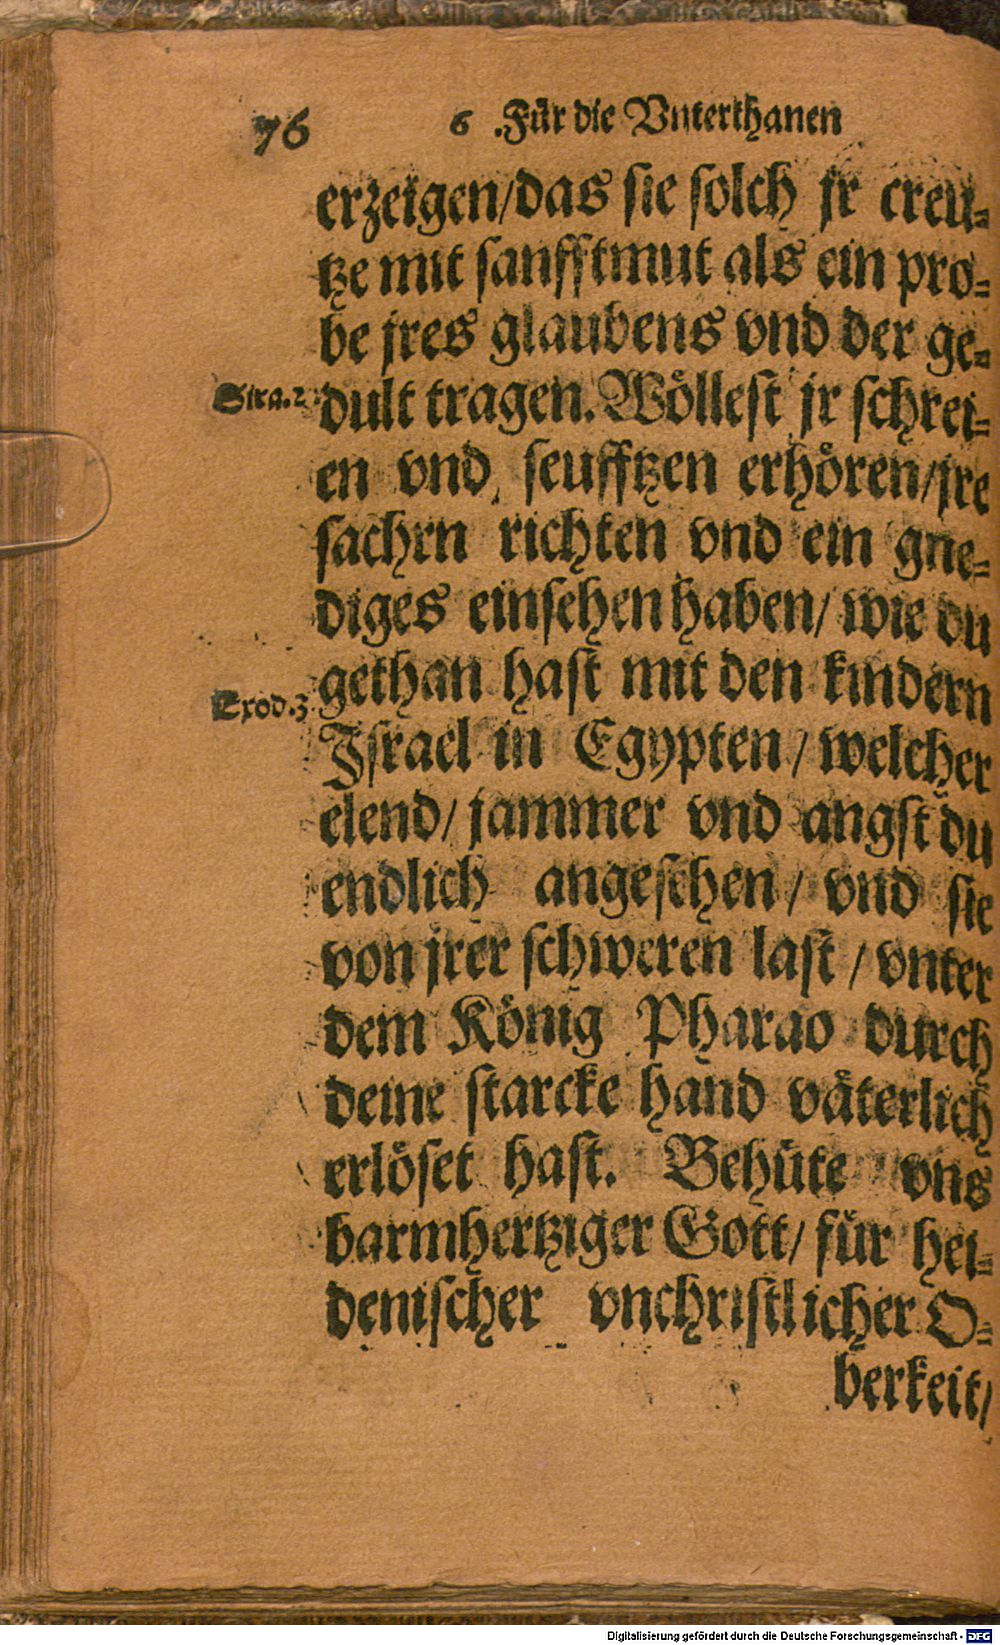 76 6 Für die Vnterthanen
erzeigen/das sie solch jr creu-
tze mit sanfftmut als ein pro-
be jres glaubens vnd der ge-
Sira.2. dult tragen. Wöllest jr schrei-
en vnd seufftzen erhören/jre
sachrn richten vnd ein gne-
diges einsehen haben/ wie du
gethan hast mit den kindern
Exod.3 Israel in Egypten/ welcher
elend/ jammer vnd angst du
endlich angesehen/ vnd sie
von jrer schweren last/ vnter
dem König Pharao durch
deine starcke hand väterlich
erlöset hast. Behüte vns
barmhertziger Gott/ für hei-
denischer vnchristlicher O-
berkeit/
Digitalisierung gefördert durch die Deutsche Forschungsgemeinschaft - DFG